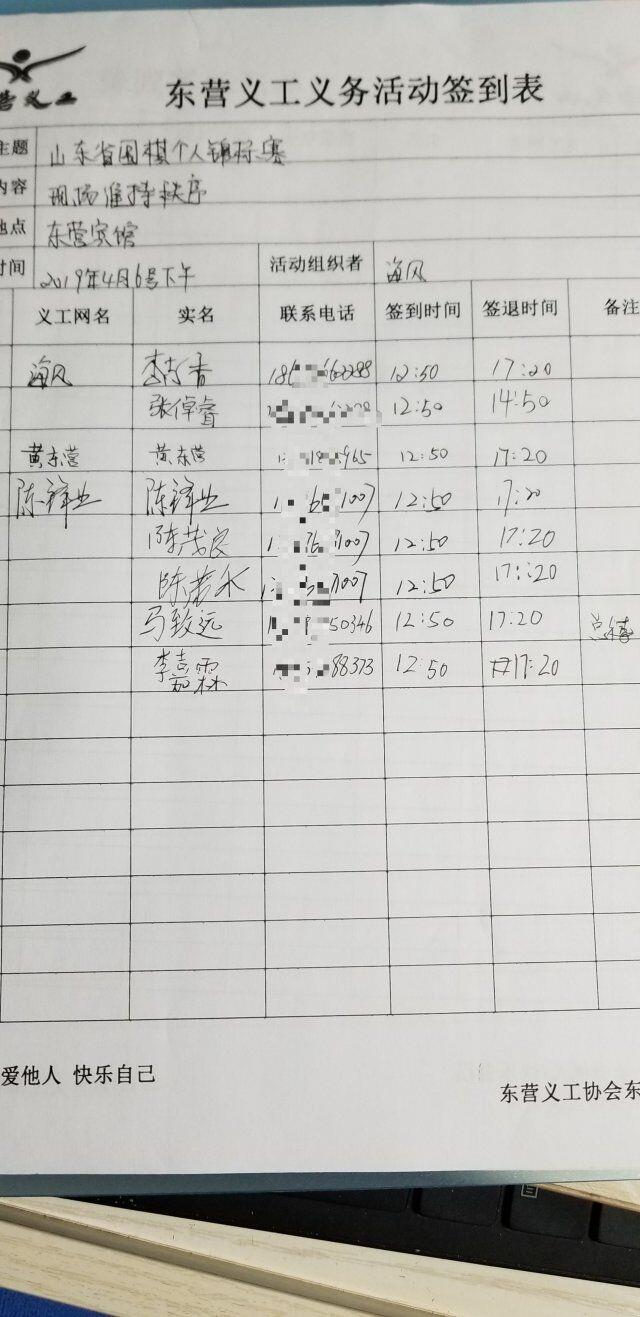 营义工
东营义工义务活动签到表
主题 山东省围棋个人锦标赛
内容 现场维持秩序
地点 东营宾馆
时间 2019年4月6号下午 活动组织者 海风
义工网名 实名 联系电话 签到时间 签退时间 备注
海风 香 12:50 17:20
张倬睿 12:50 14:50
黄东营 黄东营 965 12:50 17:20
陈锋业 陈锋业 1007 12:50 17:20
陈茂良 1007 12:50 17:20
陈若水 1007 12:50 17:20
马致远 50346 12:50 17:20
李嘉霖 88373 12:50 17:20
爱他人 快乐自己
东营义工协会东